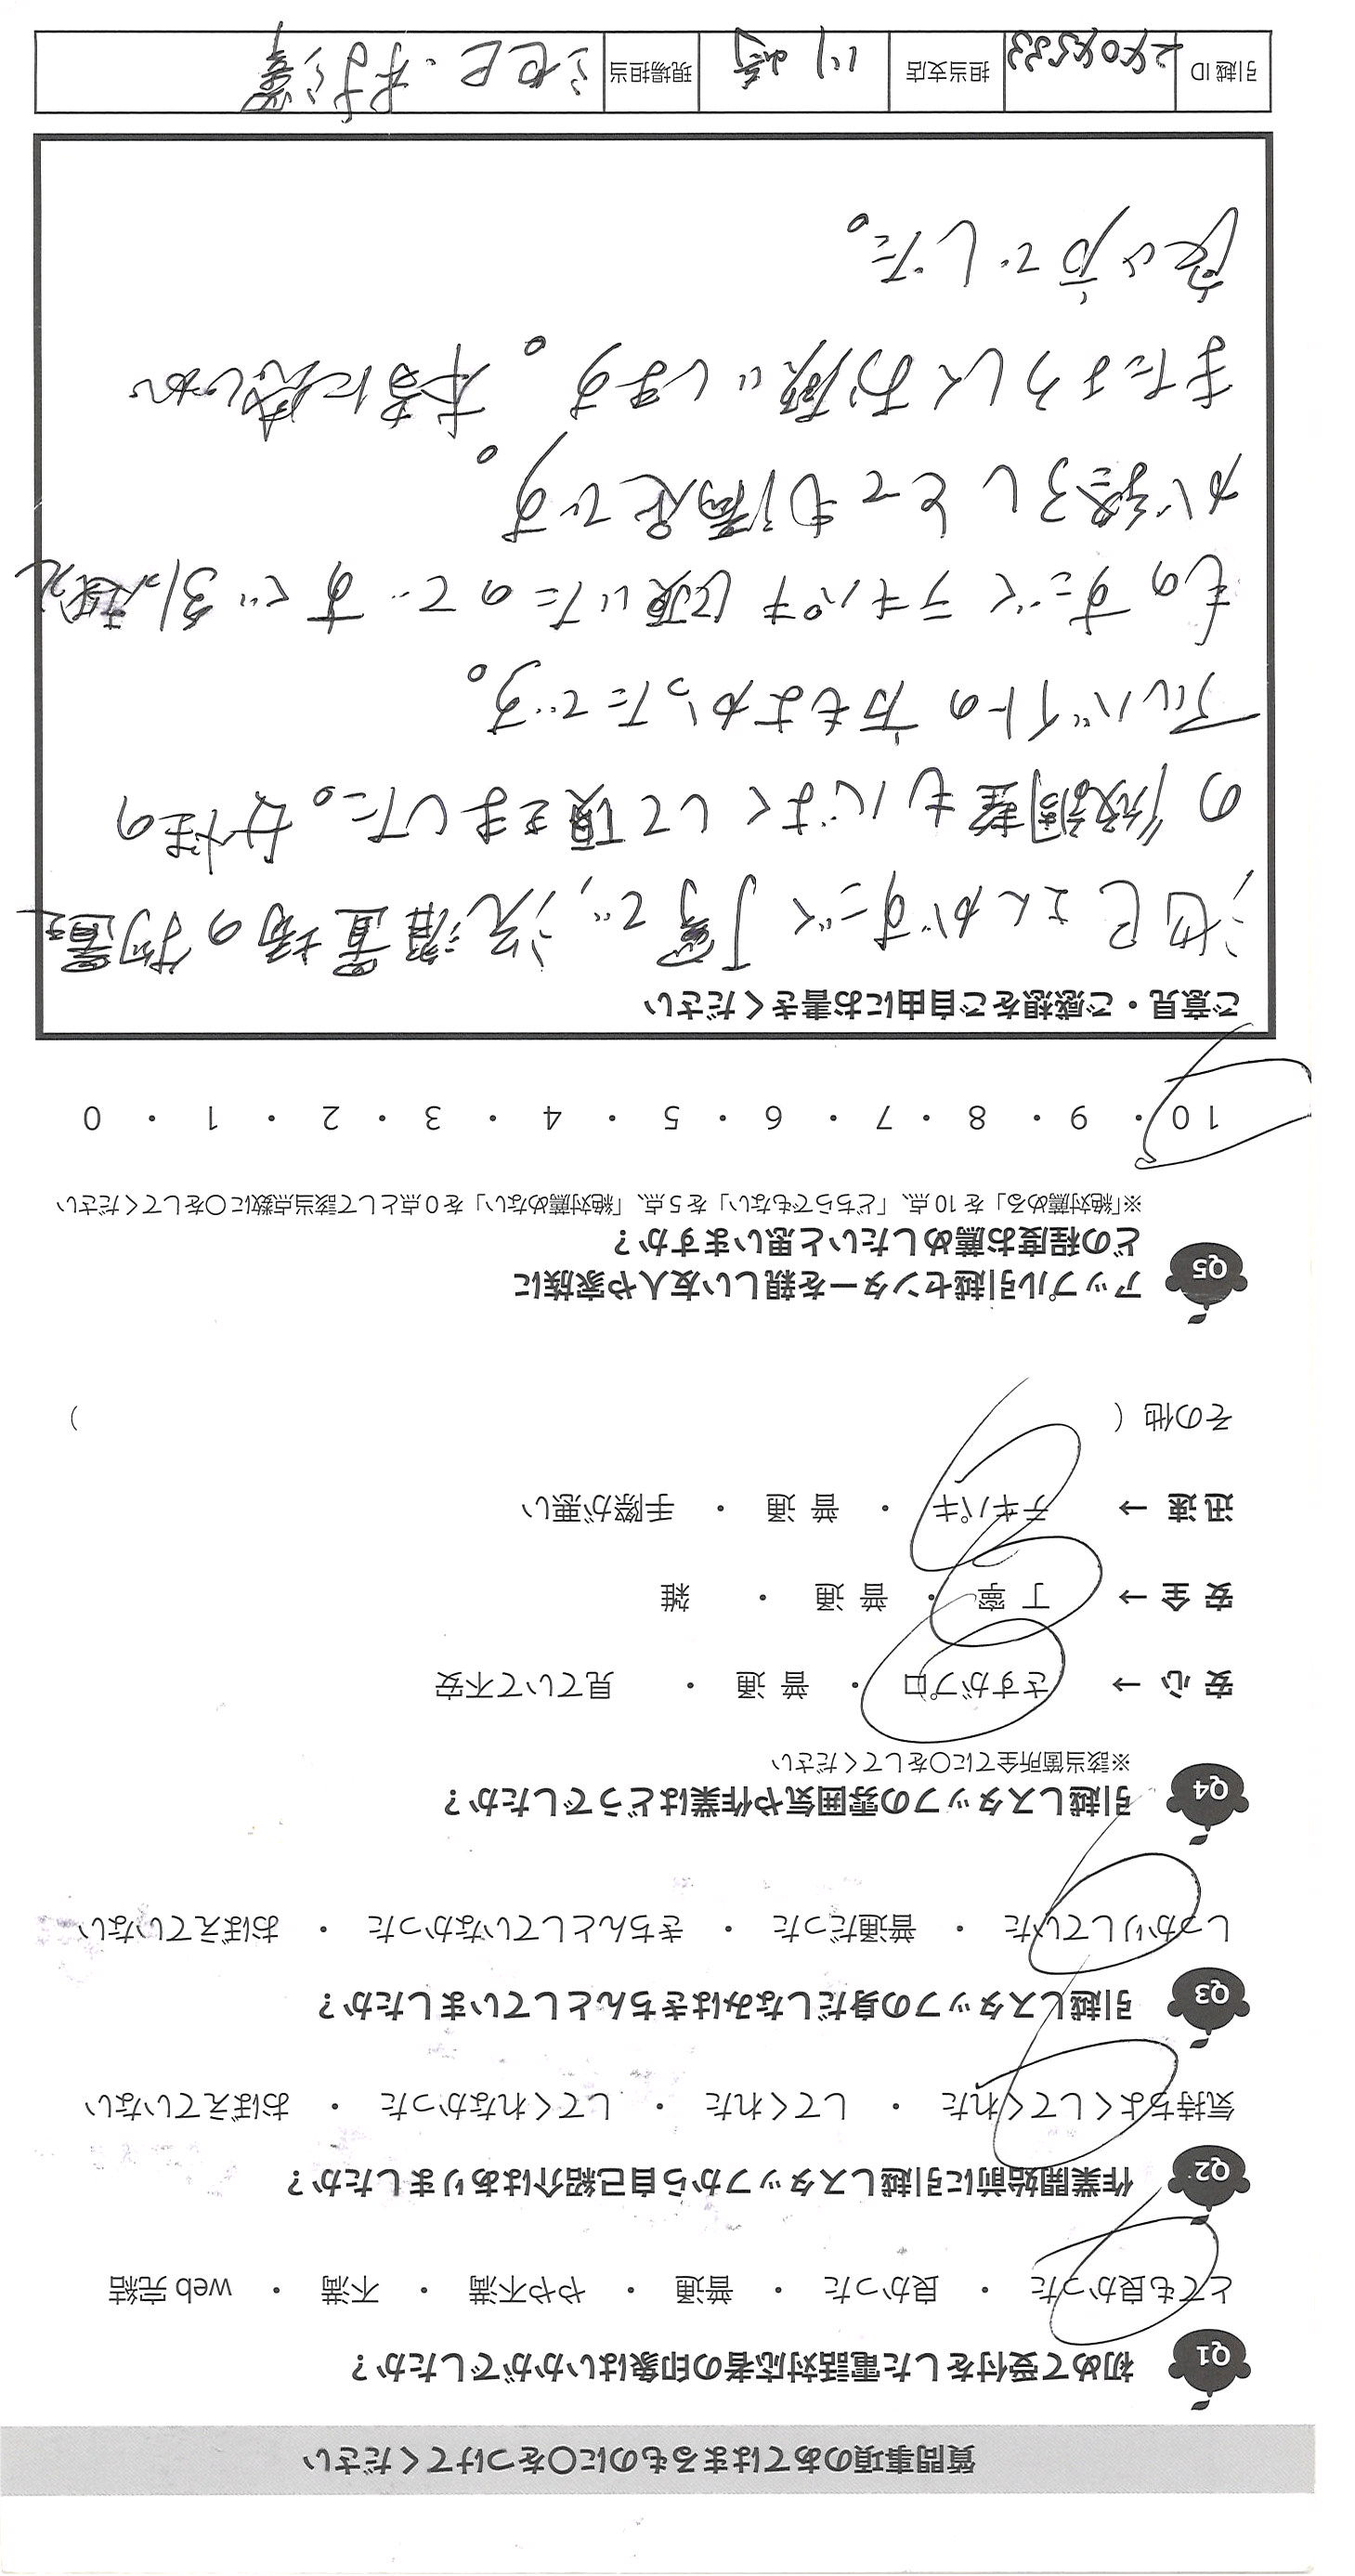 質問事項のあてはまるものに○をつけてください
Q1 初めて受付をした電話対応者の印象はいかがでしたか?
とても良かった ・ 良かった ・ 普通 ・ やや不満 ・ 不満 ・ web 完結
Q2 作業開始前に引越しスタッフから自己紹介はありましたか?
気持ちよくしてくれた ・ してくれた ・ してくれなかった ・ おぼえていない
Q3 引越しスタッフの身だしなみはきちんとしていましたか?
しっかりしていた ・ 普通だった ・ きちんとしていなかった ・ おぼえていない
Q4 引越しスタッフの雰囲気や作業はどうでしたか?
※該当箇所全てに○をしてください
安 心 → さすがプロ ・ 普 通 ・ 見ていて不安
安 全 → 丁 寧 ・ 普 通 ・ 雑
迅 速 → テキパキ ・ 普 通 ・ 手際が悪い
その他 ( )
Q5 アップル引越センターを親しい友人や家族に
どの程度お薦めしたいと思いますか?
※「絶対薦める」を 10 点、「どちらでもない」を 5 点、「絶対薦めない」を 0 点として該当点数に○をしてください
10 ・ 9 ・ 8 ・ 7 ・ 6 ・ 5 ・ 4 ・ 3 ・ 2 ・ 1 ・ 0
ご意見・ご感想をご自由にお書きください
池田さんがすごく丁寧で、洗濯置場の物置
の微調整も心よくして頂きました。女性の
アルバイトの方もよかったです。
ものすごくテキパキ頂いたので すぐ引っ越し
が終るしとても満足です。
またよろしくお願いします。本当に感じが
良い方でした。
引越 ID 担当支店 川崎 現場担当